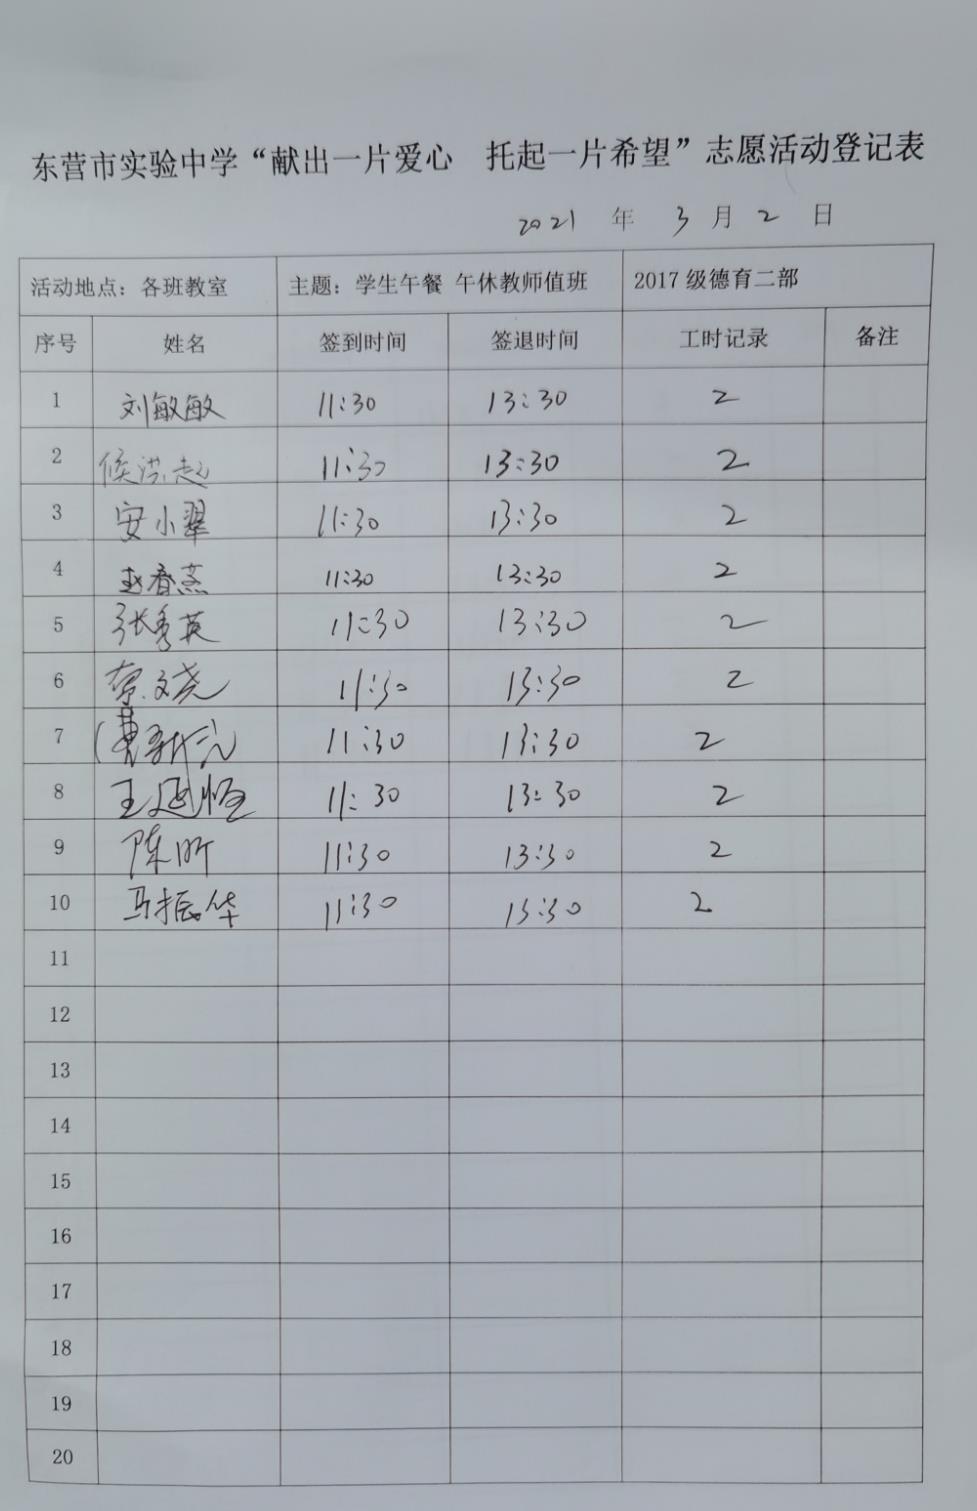 东营市实验中学“献出一片爱心 托起一片希望”志愿活动登记表
2021 年 3 月 2 日
活动地点：各班教室 主题：学生午餐 午休教师值班 2017级德育二部
序号 姓名 签到时间 签退时间 工时记录 备注
1 刘敏敏 11:30 13:30 2
2 侯洪起 11:30 13:30 2
3 安小翠 11:30 13:30 2
4 赵春燕 11:30 13:30 2
5 张秀英 11:30 13:30 2
6 文尧 11:30 13:30 2
7 曹 11:30 13:30 2
8 王延恒 11:30 13:30 2
9 陈昕 11:30 13:30 2
10 马振华 11:30 13:30 2
11
12
13
14
15
16
17
18
19
20